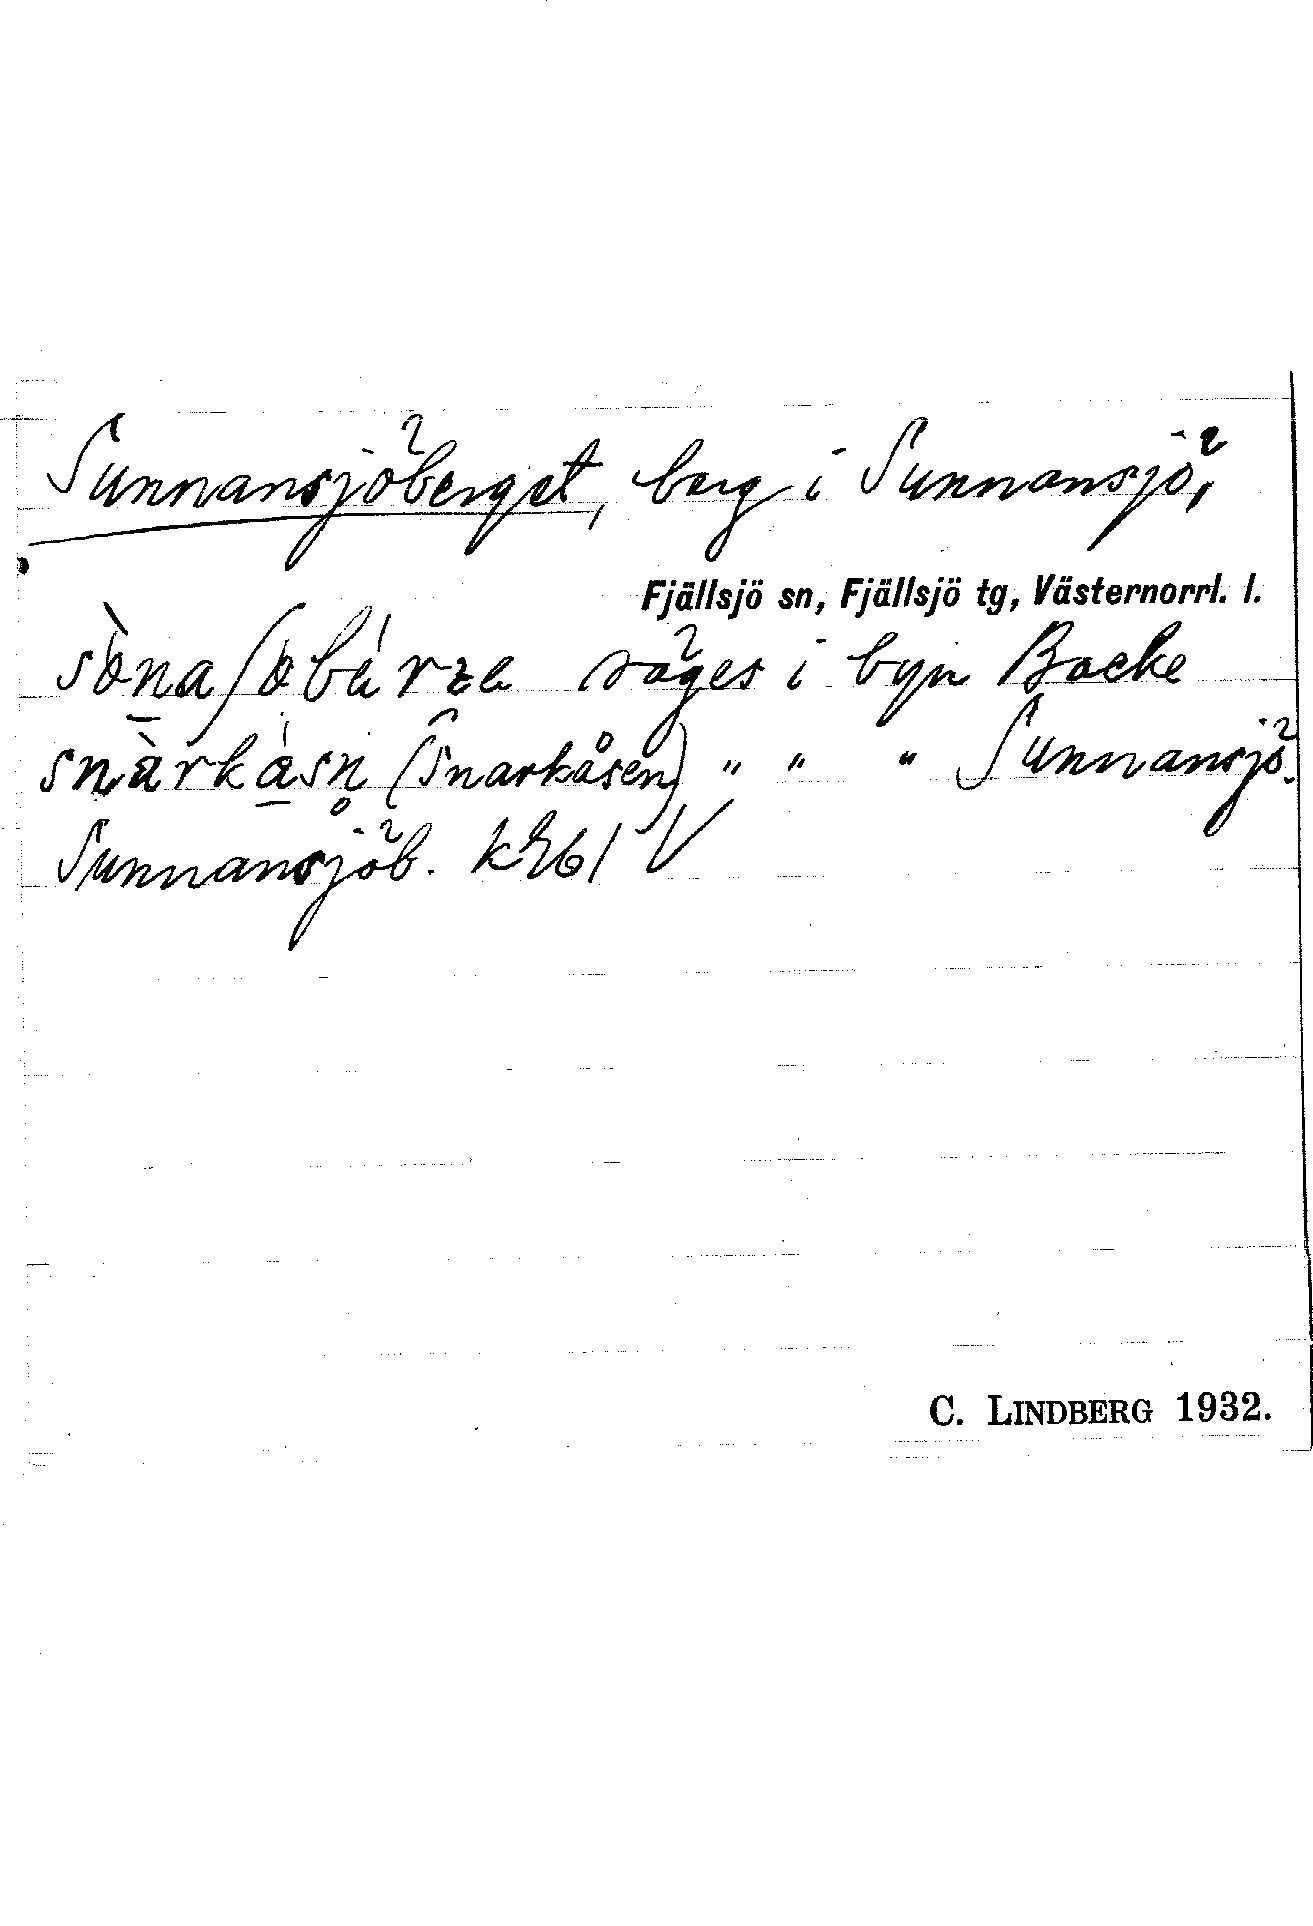 Sunnansjöberget, berg i Sunnansjö,
Fjällsjö sn, Fjällsjö tg, Västernorrl. l.
ssäges i byn Backe
(Snarkåsen) " " " Sunnansjö.
Sunnansjöb.
C. LINDBERG 1932.